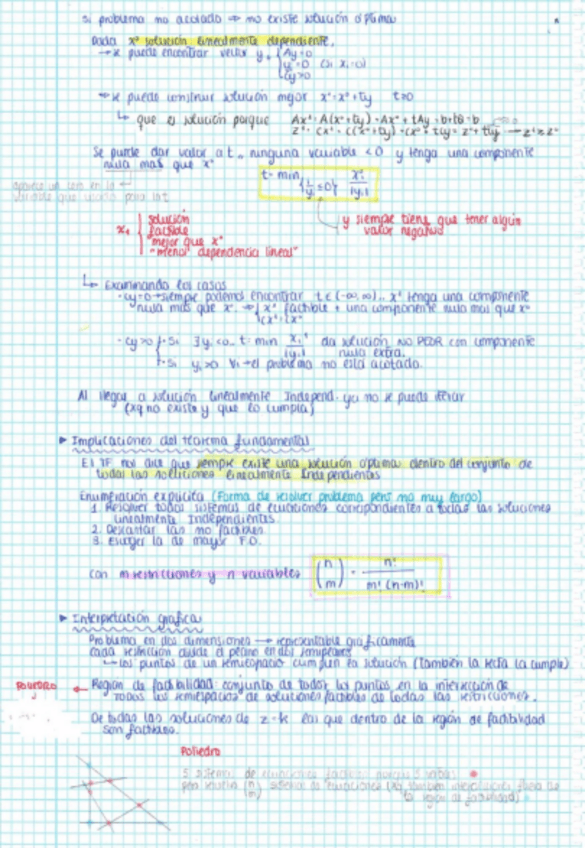 Si problema no acotado ⇒ no existe solución óptima
Dada x° solución linealmente dependiente,
→ se puede encontrar vector y. { Ay=0
yi=0 (si xi=0)
cy>0
→ se puede construir solución mejor x¹=x°+ty t>0
↳ que es solución porque Ax¹=A(x°+ty)=Ax°+tAy=b+t0=b
z¹=cx¹=c(x°+ty)=cx°+tcy=z°+tcy → z¹≥z°
Se puede dar valor a t.. ninguna variable <0 y tenga una componente
nula más que x°
t= min xi°
|yi|
variable que
y siempre tiene que tener algún
valor negativo
x¹ { solución
factible
"mejor que x°"
"menor dependencia lineal"
↳ Examinando los casos
· cy=0→siempre podemos encontrar t∈(-∞,∞).. x¹ tenga una componente
nula más que x° ⇒ { x¹ factible + una componente nula más que x°
cx¹=cx°
· cy>0 { · Si ∃yi<0.. t=min xi° da solución NO PEOR con componente
|yi| nula extra.
· Si yi>0 ∀i→el problema no está acotado.
Al llegar a solución linealmente Independ. ya no se puede iterar
(xq no existe y que lo cumpla)
▸ Implicaciones del teorema fundamental
El TF nos dice que siempre existe una solución óptima dentro del conjunto de
todas las soluciones linealmente Independientes
Enumeración explícita (Forma de resolver problema pero no muy largo)
1. Resolver todos sistemas de ecuaciones correspondientes a todas las soluciones
linealmente Independientes.
2. Descartar las no factibles
3. Escoger la de mayor F.O.
con m restricciones y n variables (n m) = n! / m!(n-m)!
▸ Interpretación gráfica
Problema en dos dimensiones → representable gráficamente
cada restricción divide el plano en dos semiplanos
↳ los puntos de un semiespacio cumplen la solución (también la recta la cumple)
POLIEDRO ← Región de factibilidad: conjunto de todos los puntos en la intersección de
todos los semiespacios de soluciones factibles de todas las restricciones.
De todas las soluciones de z=k las que dentro de la región de factibilidad
son factibles.
Poliedro
5 sistemas de ecuaciones
sistemas de ecuaciones
la región de factibilidad)